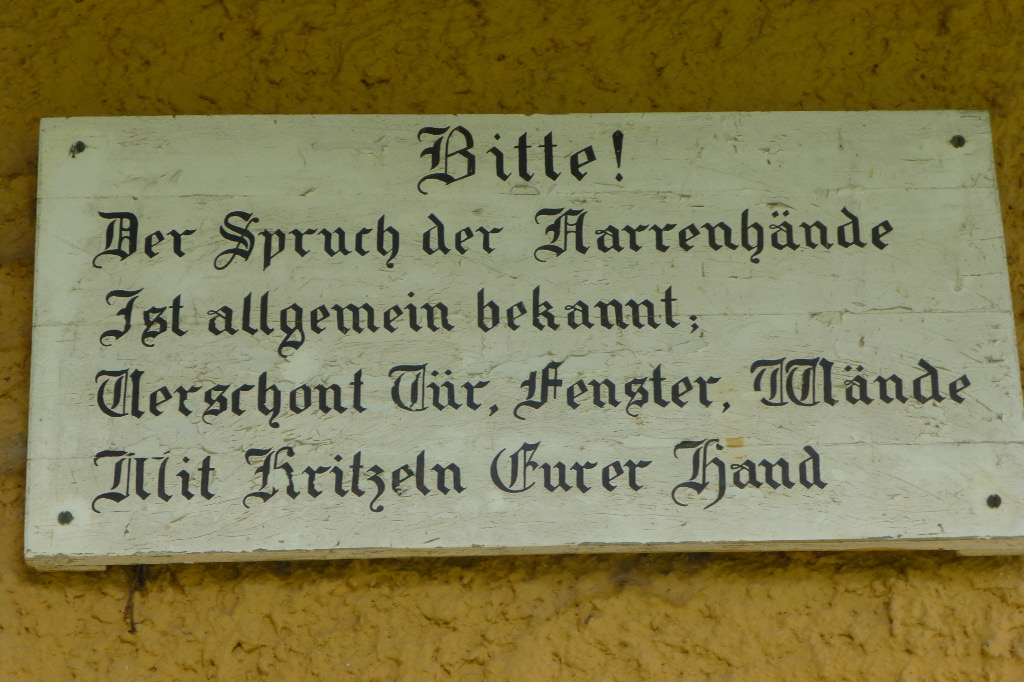 Bitte!
Der Spruch der Narrenhände
Ist allgemein bekannt;
Verschont Tür, Fenster, Wände
Mit Kritzeln Eurer Hand